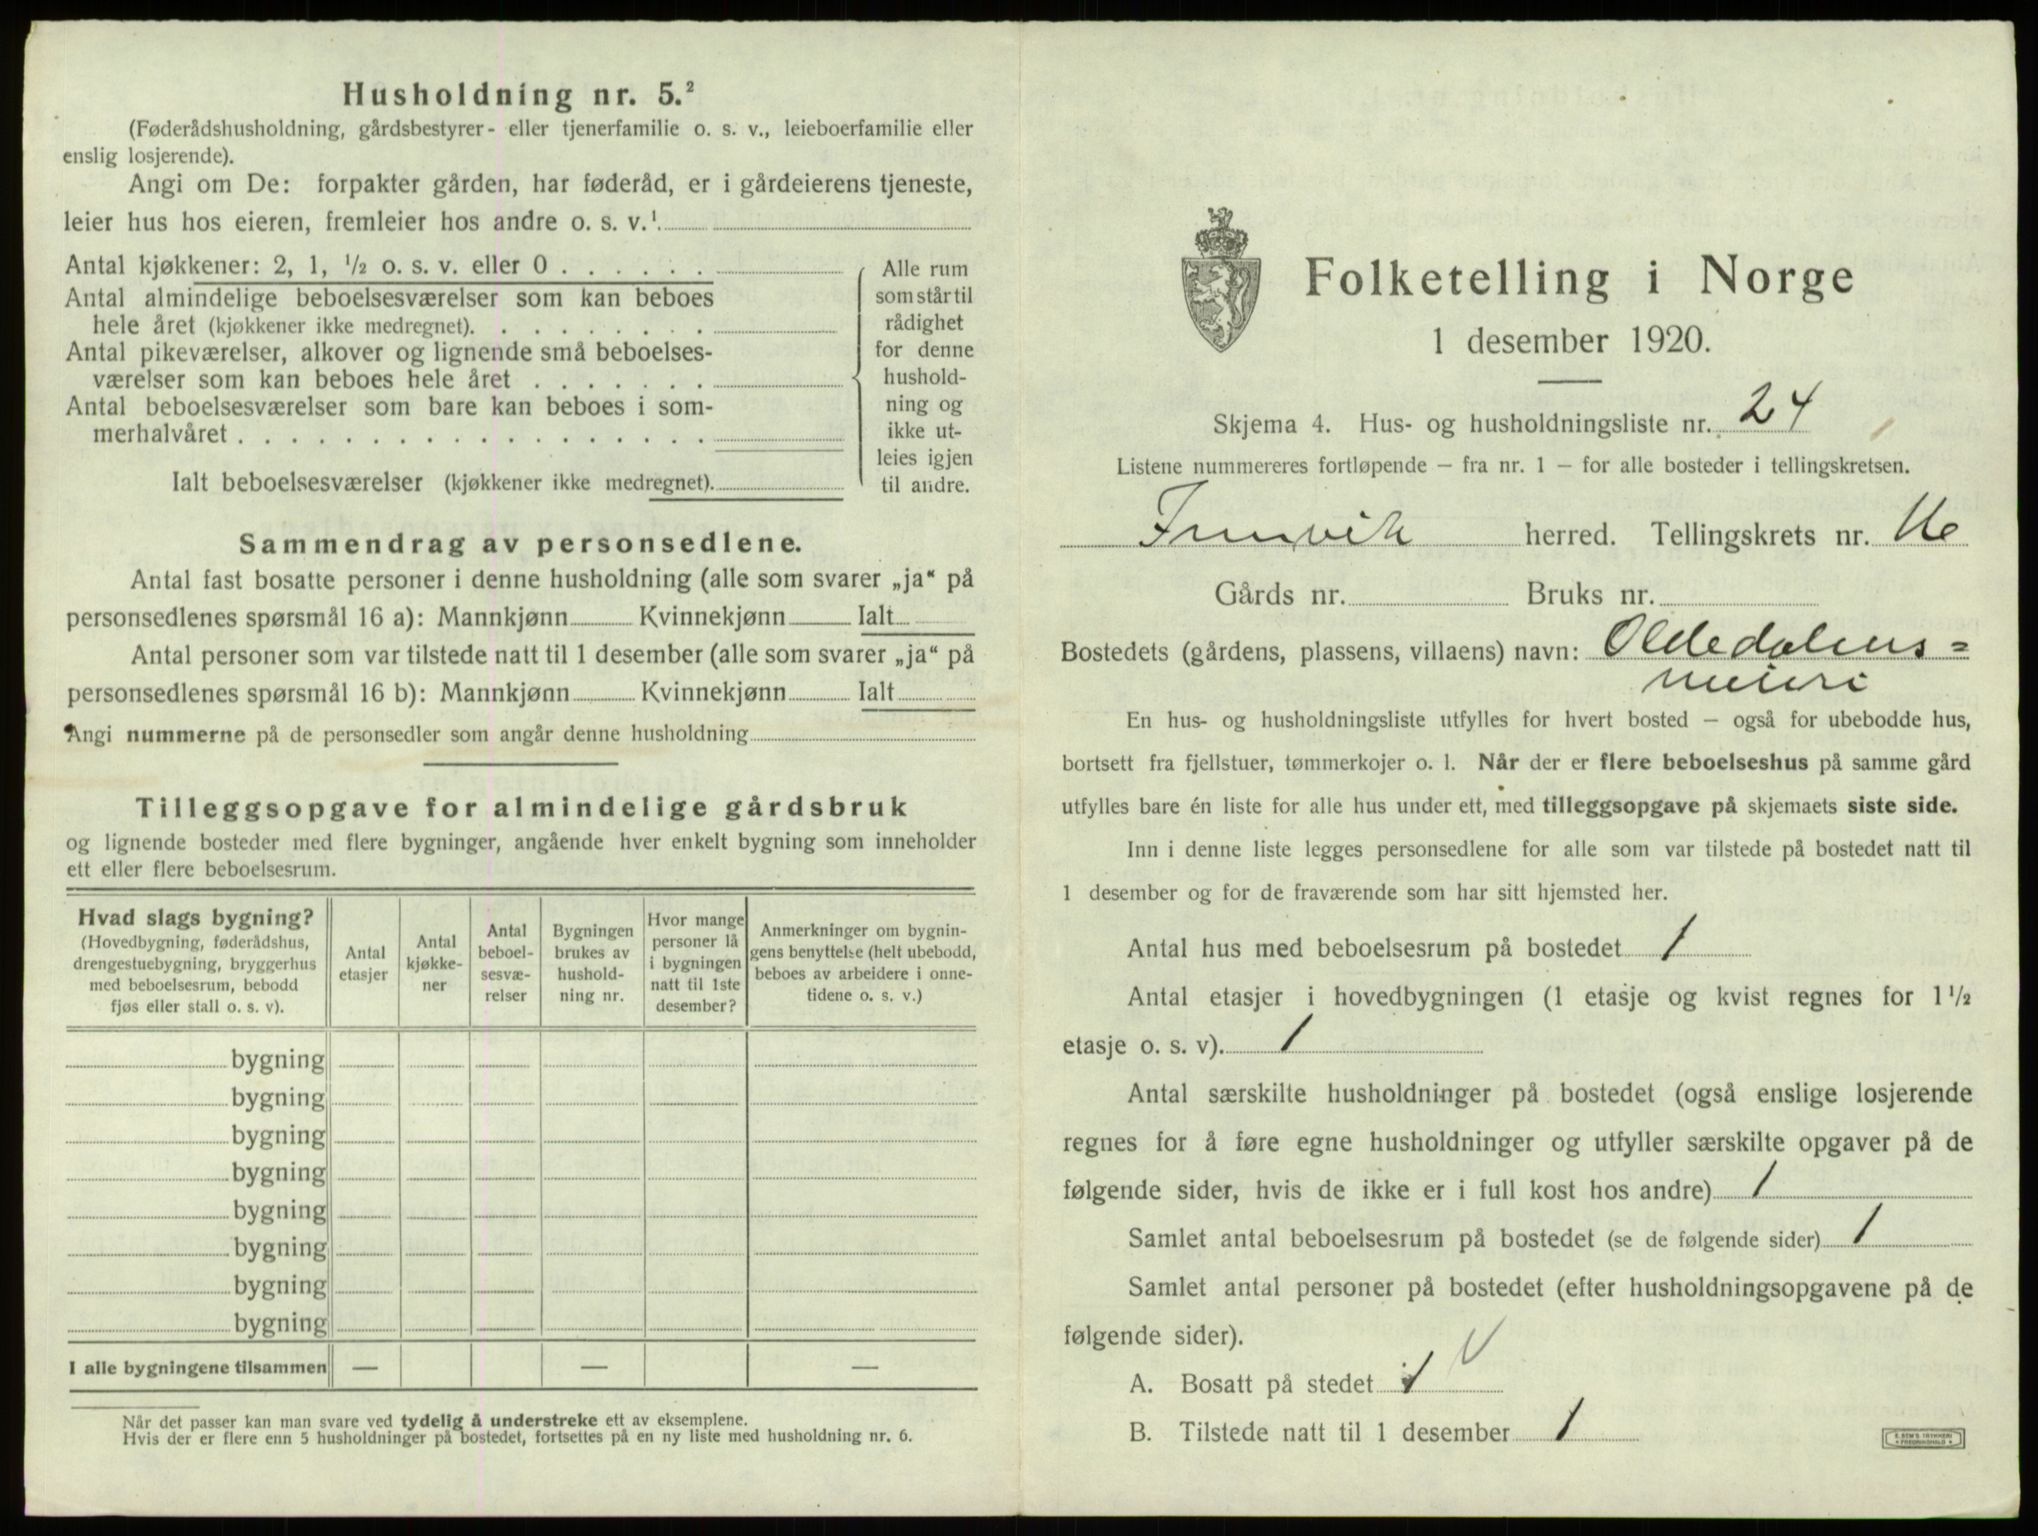 Husholdning nr. 5.²
(Føderådshusholdning, gårdsbestyrer- eller tjenerfamilie o. s. v., leieboerfamilie eller
enslig losjerende).
Angi om De: forpakter gården, har føderåd, er i gårdeierens tjeneste,
leier hus hos eieren, fremleier hos andre o. s. v.¹
Antal kjøkkener: 2, 1, ½ o. s. v. eller 0 . . . . . .
Antal almindelige beboelsesværelser som kan beboes
hele året (kjøkkener ikke medregnet). . . . . . . . .
Antal pikeværelser, alkover og lignende små beboelses-
værelser som kan beboes hele året . . . . . . .
Antal beboelsesværelser som bare kan beboes i som-
merhalvåret . . . . . . . . . . . . . . . . . .
Ialt beboelsesværelser (kjøkkener ikke medregnet).
Alle rum
som står til
rådighet
for denne
hushold-
ning og
ikke ut-
leies igjen
til andre.
Sammendrag av personsedlene.
Antal fast bosatte personer i denne husholdning (alle som svarer „ja“ på
personsedlenes spørsmål 16 a): Mannkjønn Kvinnekjønn Ialt
Antal personer som var tilstede natt til 1 desember (alle som svarer „ja“ på
personsedlenes spørsmål 16 b): Mannkjønn Kvinnekjønn Ialt
Angi nummerne på de personsedler som angår denne husholdning
Tilleggsopgave for almindelige gårdsbruk
og lignende bosteder med flere bygninger, angående hver enkelt bygning som inneholder
ett eller flere beboelsesrum.
Hvad slags bygning?
(Hovedbygning, føderådshus,
drengestuebygning, bryggerhus
med beboelsesrum, bebodd
fjøs eller stall o. s. v).
Antal
etasjer
Antal
kjøkke-
ner
Antal
beboel-
sesvæ-
relser
Bygningen
brukes av
hushold-
ning nr.
Hvor mange
personer lå
i bygningen
natt til 1ste
desember?
Anmerkninger om bygnin-
gens benyttelse (helt ubebodd,
beboes av arbeidere i onne-
tidene o. s. v.)
bygning
bygning
bygning
bygning
bygning
bygning
bygning
bygning
I alle bygningene tilsammen — — —
Når det passer kan man svare ved tydelig å understreke ett av eksemplene.
Hvis der er flere enn 5 husholdninger på bostedet, fortsettes på en ny liste med husholdning nr. 6.
Folketelling i Norge
1 desember 1920.
Skjema 4. Hus- og husholdningsliste nr. 24
Listene nummereres fortløpende – fra nr. 1 – for alle bosteder i tellingskretsen.
Innvik herred. Tellingskrets nr. 16
Gårds nr. Bruks nr.
Bostedets (gårdens, plassens, villaens) navn: Oldedalens=
meieri
En hus- og husholdningsliste utfylles for hvert bosted – også for ubebodde hus,
bortsett fra fjellstuer, tømmerkojer o. l. Når der er flere beboelseshus på samme gård
utfylles bare én liste for alle hus under ett, med tilleggsopgave på skjemaets siste side.
Inn i denne liste legges personsedlene for alle som var tilstede på bostedet natt til
1 desember og for de fraværende som har sitt hjemsted her.
Antal hus med beboelsesrum på bostedet 1
Antal etasjer i hovedbygningen (1 etasje og kvist regnes for 1½
etasje o. s. v). 1
Antal særskilte husholdninger på bostedet (også enslige losjerende
regnes for å føre egne husholdninger og utfyller særskilte opgaver på de
følgende sider, hvis de ikke er i full kost hos andre) 1
Samlet antal beboelsesrum på bostedet (se de følgende sider) 1
Samlet antal personer på bostedet (efter husholdningsopgavene på de
følgende sider).
A. Bosatt på stedet 1
B. Tilstede natt til 1 desember 1